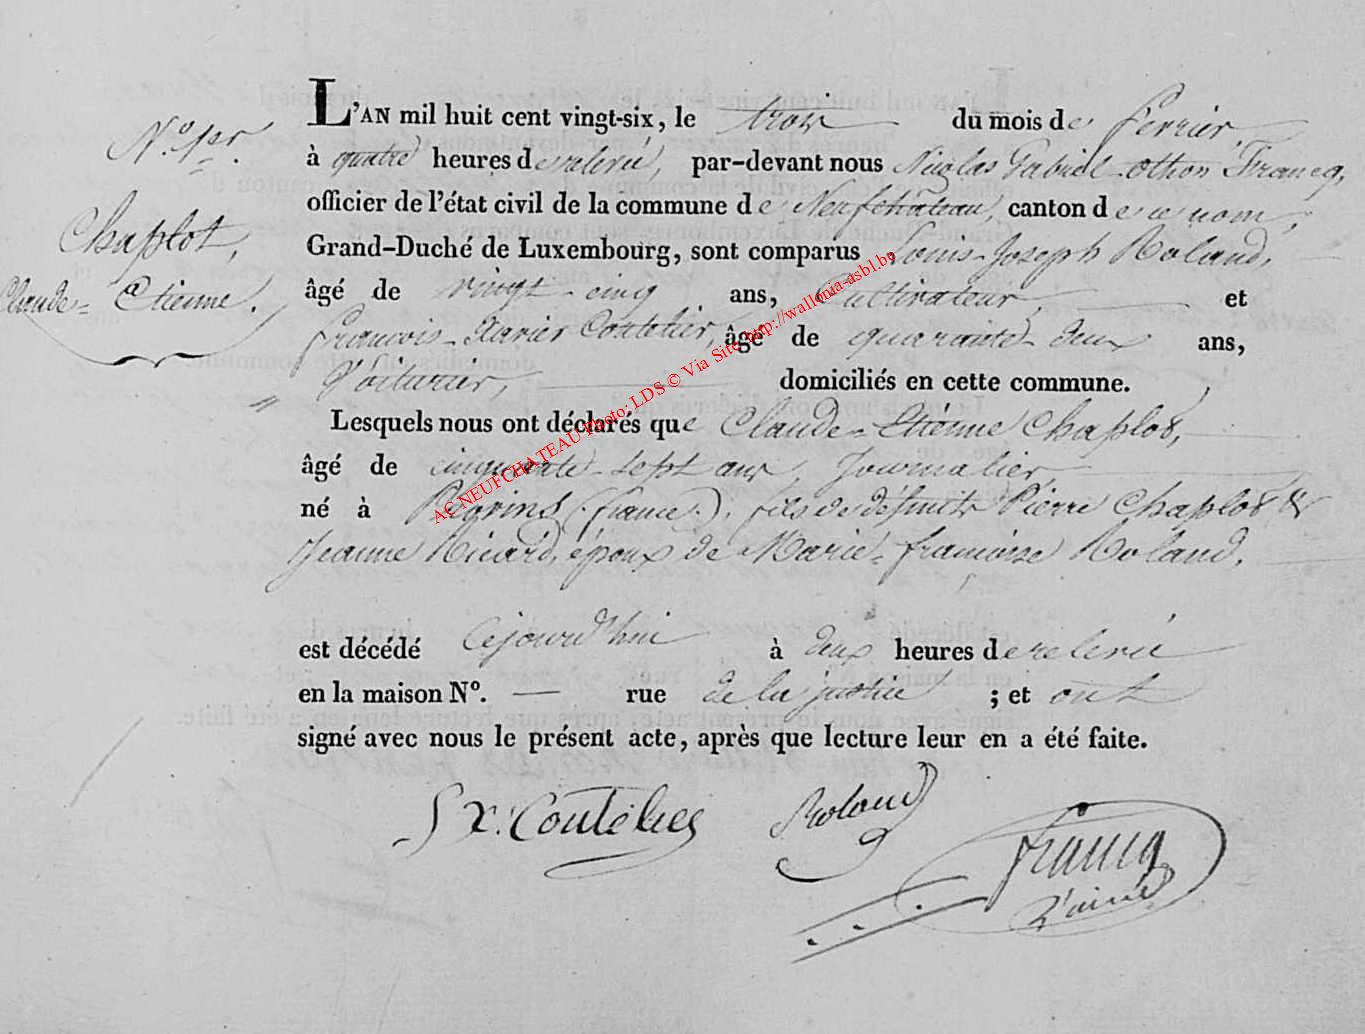 N.º 1er.
Chaplot,
Claude-Etienne.
L'AN mil huit cent vingt-six, le trois du mois de fevrier
à quatre heures de relevé, par-devant nous Nicolas Gabriel othon Francq,
officier de l'état civil de la commune de Neufchateau, canton de ce nom,
Grand-Duché de Luxembourg, sont comparus Louis-Joseph Roland,
âgé de vingt-cinq ans, Cultivateur, et
françois-Xavier Coutelier, âgé de quarante-deux ans,
Voiturier, domiciliés en cette commune.
Lesquels nous ont déclarés que Claude-Etienne Chaplot,
âgé de cinquante-sept ans, Journalier,
né à (france), fils de défunts Pierre Chaplot &
Jeanne Ricard, époux de Marie-francoise Roland,
est décédé Cejourd'hui à deux heures de relevé
en la maison Nº. — rue de la justice ; et ont
signé avec nous le présent acte, après que lecture leur en a été faite.
fx. Coutelier Roland
francq
L'ainé
ACNEUFCHATEAU Photo: LDS © Via Site http://wallonia-asbl.be